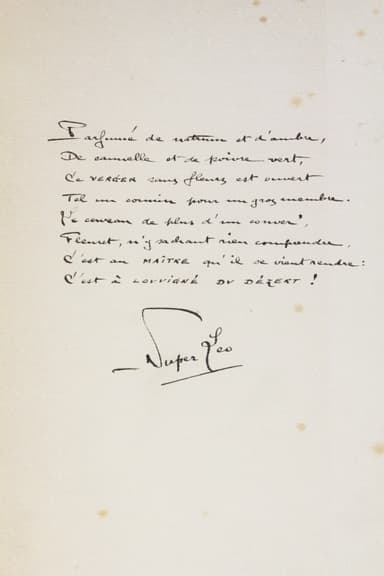 Parfumé de natrum et d'ambre,
De cannelle et de poivre vert,
Ce VERGER sans fleurs est ouvert
Tel un connin pour un gros membre.
cerveau de plus d'un
n'y sachant rien comprendre,
C'est au MAÎTRE qu'il se vient rendre :
C'est à LOUVIGNÉ DU DÉZERT !
Super Leo